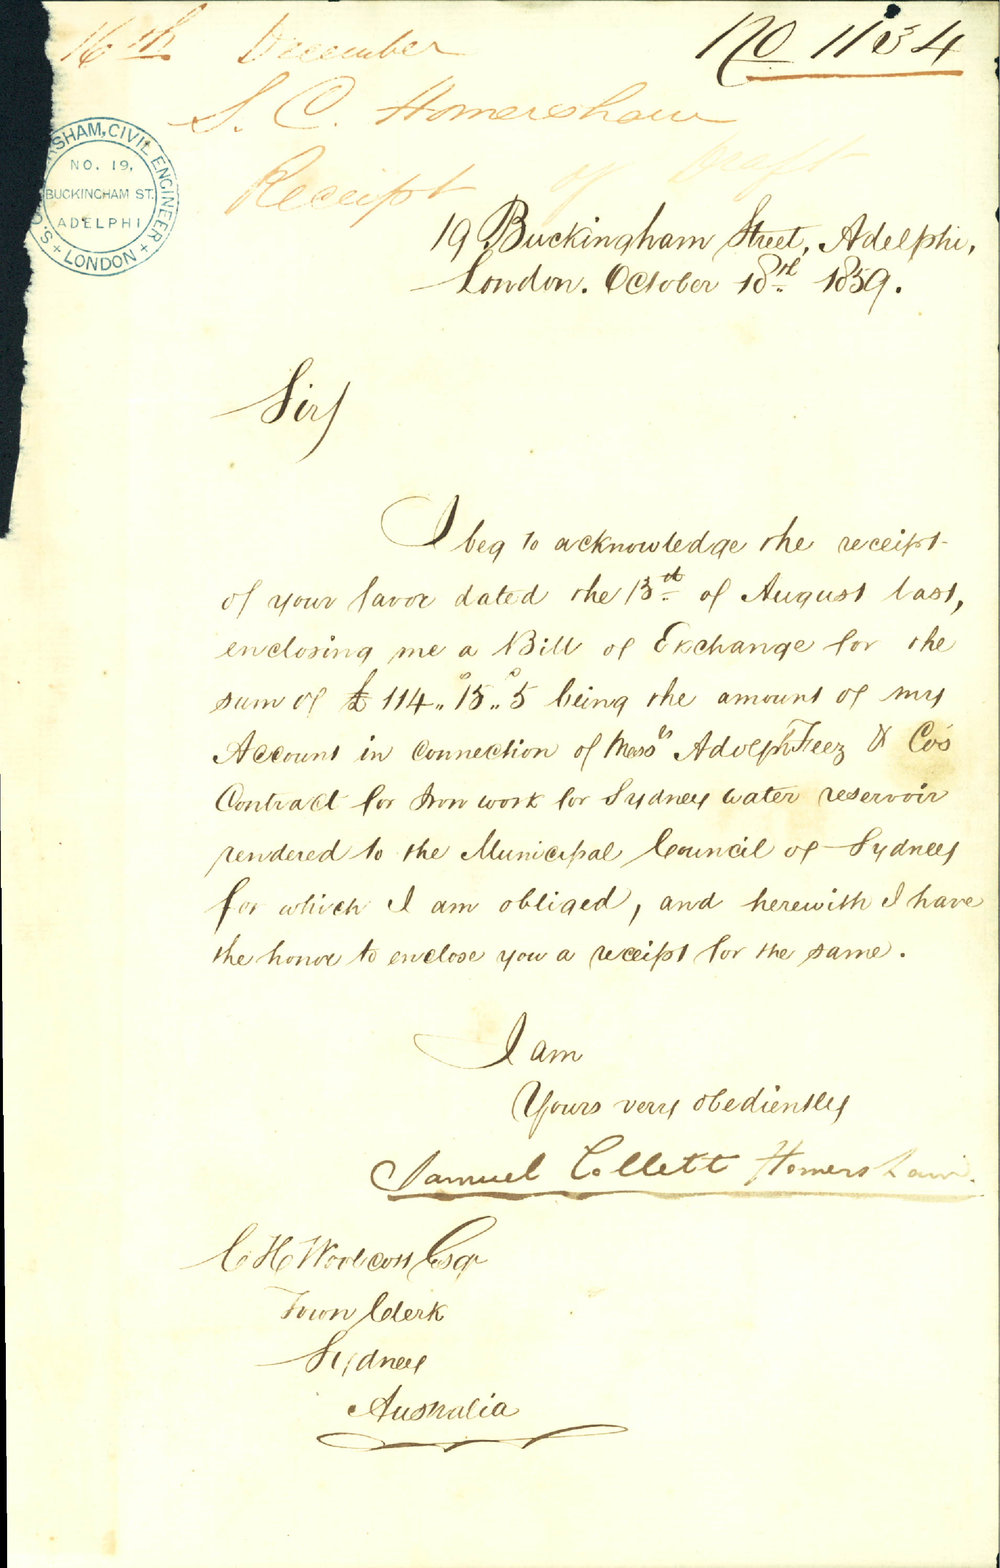 16th December
No 1134
S. C. Homersham
Receipt of Draft
SHAM, CIVIL ENGINEER
NO. 19,
BUCKINGHAM ST.
ADELPHI
S.C. + LONDON +
19 Buckingham Street, Adelphi,
London. October 18th 1859.
Sir,
I beg to acknowledge the receipt
of your favor dated the 13th of August last,
enclosing me a Bill of Exchange for the
sum of £114.. 15.. 5 being the amount of my
Account in connection of Messrs Adolph Feez & Co's
Contract for Iron work for Sydney water reservoir
rendered to the Municipal Council of Sydney
for which I am obliged, and herewith I have
the honor to enclose you a receipt for the same.
I am
Yours very obediently
Samuel Collett Homersham.
C H Woolcott Esqr
Town Clerk
Sydney
Australia